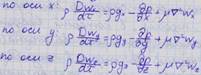 по оси x: ρ Dwₓ/dτ = ρgₓ - ∂p/∂x + μ∇²wₓ
по оси y: ρ Dwᵧ/dτ = ρgᵧ - ∂p/∂y + μ∇²wᵧ
по оси z: ρ Dw_z/dτ = ρg_z - ∂p/∂z + μ∇²w_z